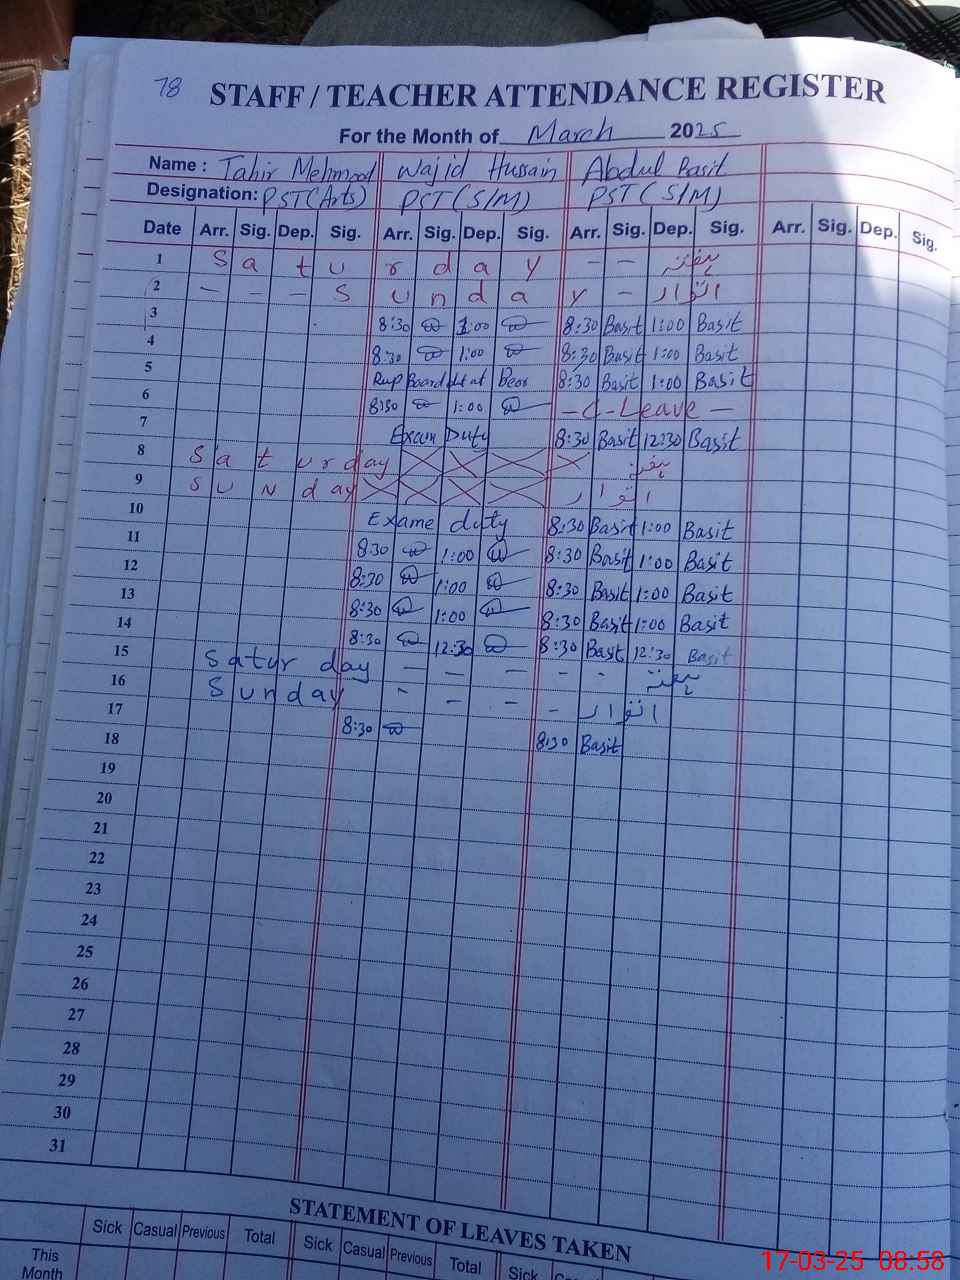 78
STAFF / TEACHER ATTENDANCE REGISTER
For the Month of March 2025
Name : Tahir Mehmood Wajid Hussain Abdul Basit
Designation: PST(Arts) PST(S/M) PST(S/M)
Date Arr. Sig. Dep. Sig. Arr. Sig. Dep. Sig. Arr. Sig. Dep. Sig. Arr. Sig. Dep. Sig.
1 Saturday - - ہفتہ
2 - - - Sunday - اتوار
3 8:30 1:00 8:30 Basit 1:00 Basit
4 8:30 1:00 8:30 Basit 1:00 Basit
5 Board at 8:30 Basit 1:00 Basit
6 8:30 1:00 - C-Leave -
7 Exam Duty 8:30 Basit 12:30 Basit
8 Saturday ہفتہ
9 SUNday اتوار
10 Exame duty 8:30 Basit 1:00 Basit
11 8:30 1:00 8:30 Basit 1:00 Basit
12 8:30 1:00 8:30 Basit 1:00 Basit
13 8:30 1:00 8:30 Basit 1:00 Basit
14 8:30 12:30 8:30 Basit 12:30 Basit
15 Saturday - - - - - ہفتہ
16 Sunday - - - - اتوار
17 8:30 8:30 Basit
18
19
20
21
22
23
24
25
26
27
28
29
30
31
STATEMENT OF LEAVES TAKEN
Sick Casual Previous Total Sick Casual Previous Total Sick
This Month
17-03-25 08:58